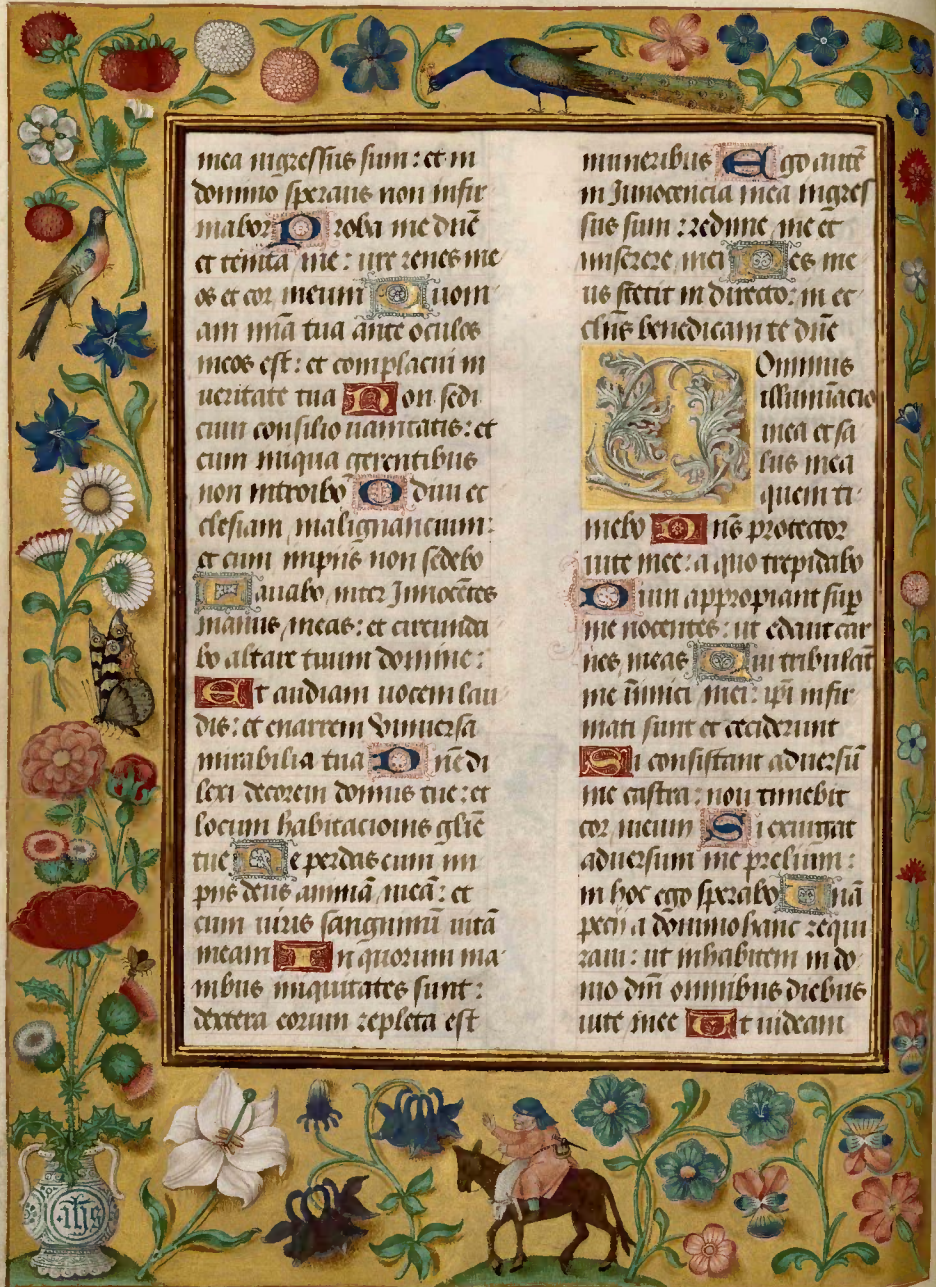 mea ingressus sum : et in
domino sperans non infir
mabor Proba me dnē
et tēmta me : ure renes me
os et cor meum Quoni
am mīa tua ante oculos
meos est : et complacui in
veritate tua Non sedi
cum consilio vanitatis : et
cum iniqua gerentibus
non introibo Odivi ec
clesiam malignancium :
et cum impiis non sedebo
Lavabo inter Innocētes
manus meas : et circumda
bo altare tuum domine :
Et audiam vocem lau
dis : et enarrem Universa
mirabilia tua Dnē di
lexi decorem domus tue : et
locum habitacionis gliē
tue Ne perdas cum im
piis deus animā meā : et
cum viris sanguinū vitā
meam In quorum ma
nibus iniquitates sunt :
dextera eorum repleta est
muneribus Ego autē
in Innocencia mea ingres
sus sum : redime me et
miserere mei Pes me
us stetit in directo : in ec
clīis benedicam te dnē
Dominus
illumīacio
mea et sa
lus mea
quem ti
mebo Dn̄s protector
vite mee : a quo trepidabo
Dum appropiant sup
me nocentes : ut edant car
nes meas Qui tribulāt
me īnimici mei : ip̄i infir
mati sunt et ceciderunt
Si consistant adversū
me castra : non timebit
cor meum Si exurgat
adversum me prelium :
in hoc ego sperabo Unā
pecii a domino hanc requi
ram : ut inhabitem in do
mo dn̄i omnibus diebus
vite mee Ut videam
ihs